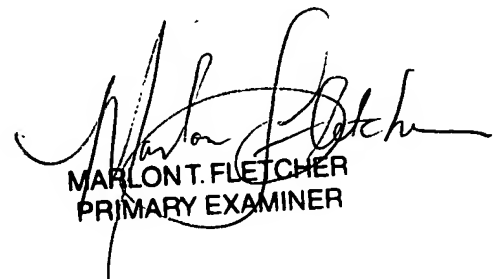 Marlon T. Fletcher
MARLON T. FLETCHER
PRIMARY EXAMINER